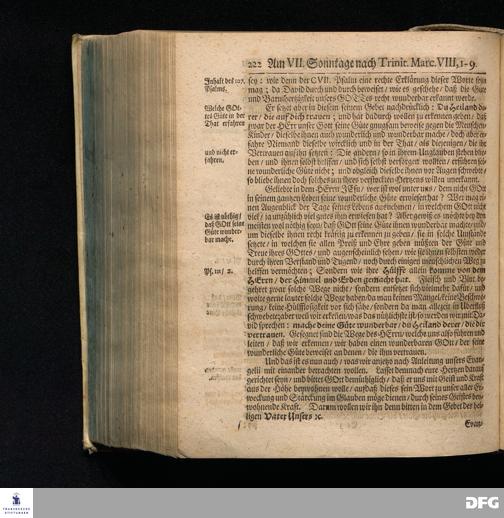 222 Am VII. Sonntage nach Trinit. Marc. VIII, 1-9.
Inhalt des 107.
Psalms.
Welche GOt-
tes Güte in der
That erfahren
und nicht er-
fahren.
Es ist nöthig/
daß GOtt seine
Güte wunder-
bar mache.
Ps. 121/ 2.
sey: wie denn der CVII. Psalm eine rechte Erklärung dieser Worte seyn
mag; da David durch und durch beweiset/ wie es geschehe/ daß die Güte
und Barmhertzigkeit unsers GOTTes recht wunderbar erkannt werde.
Er setzet aber in diesem seinem Gebet nachdrücklich: Du Heiland de-
rer/ die auf dich trauen; und hat dadurch wollen zu erkennen geben/ daß
zwar der HErr unser Gott seine Güte gnugsam beweise gegen die Menschen
Kinder/ dieselbe ihnen auch wunderlich und wunderbar mache/ doch aber er-
fahre Niemand dieselbe wircklich und in der That/ als diejenigen/ die ihr
Vertrauen auf ihn setzen: Die andern/ so in ihrem Unglauben stehen blei-
ben/ und ihnen selbst helffen/ und sich selbst versorgen wollten/ erführen sei-
ne wunderliche Güte nicht; und obgleich dieselbe ihnen vor Augen schwebete/
so bliebe ihnen doch solches um ihres verstockten Hertzens willen unerkannt.
Geliebte in dem HErrn JEsu/ wer ist wol unter uns/ dem nicht GOtt
in seinem gantzen Leben seine wunderliche Güte erwiesen hat? Wer mag ei-
nen Augenblick der Tage seines Lebens ausnehmen/ in welchem GOtt nicht
viel/ ja unzählich viel gutes ihm erwiesen hat? Aber gewiß es möchte bey den
meisten wol nöthig seyn/ daß GOtt seine Güte ihnen wunderbar machte/ und
um dieselbe ihnen recht kräftig zu erkennen zu geben/ sie in solche Umstände
setzete/ in welchen sie allen Preiß und Ehre geben müßten der Güte und
Treue ihres GOttes/ und augenscheinlich sehen/ wie sie ihnen selbsten weder
durch ihren Verstand und Tugend/ noch durch einigen menschlichen Witz zu
helffen vermöchten; Sondern wie ihre Hülffe allein komme von dem
HErrn/ der Himmel und Erden gemacht hat. Fleisch und Blut be-
gehret zwar solche Wege nicht/ sondern entsetzet sich vielmehr dafür/ und
wolte gerne lauter solche Wege haben/ da man keinen Mangel/ keine Beschwe-
rung/ keine Hülfflosigkeit vor sich sähe/ sondern da man allezeit in Uberfluß
schwebete; aber weil wir erkennen/ was das nützlichste ist/ so werden wir mit Da-
vid sprechen: mache deine Güte wunderbar/ du Heiland derer/ die dir
vertrauen. Gesegnet sind die Wege des HErrn/ welche uns also führen und
leiten/ daß wir erkennen/ wir haben einen wunderbaren GOtt/ der seine
wunderliche Güte beweiset an denen/ die ihm vertrauen.
Und das ist es nun auch/ was wir anjetzo nach Anleitung unsers Evan-
gelii mit einander betrachten wollen. Lasset demnach eure Hertzen darauf
gerichtet seyn/ und bittet GOtt demüthiglich/ daß er uns mit Geist und Kraft
aus der Höhe beywohnen wolle/ auf daß dieses sein Wort zu unser aller Er-
weckung und Stärckung im Glauben möge dienen/ durch seines Geistes bey-
wohnende Kraft. Darum wollen wir ihn denn bitten in dem Gebet des hei-
ligen Vater Unsers ꝛc.
Evan-
FRANCKESCHE
STIFTUNGEN
DFG